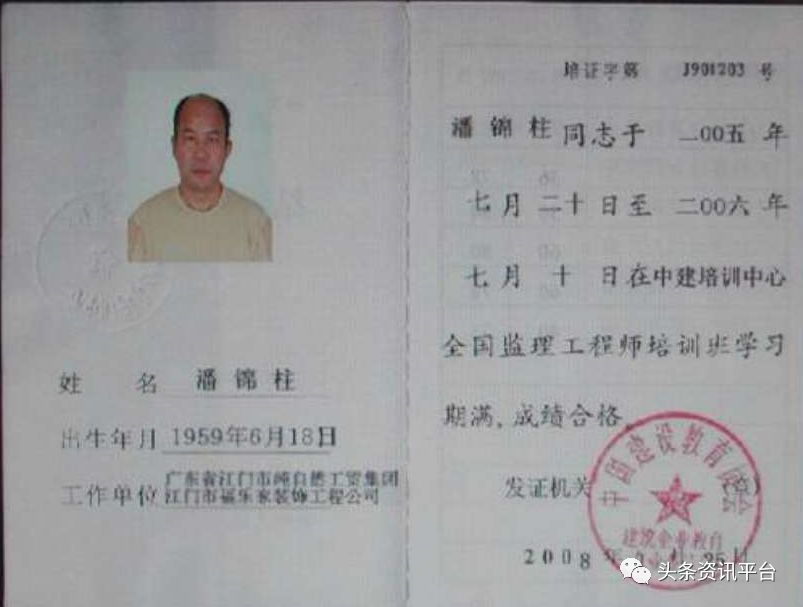 姓 名 潘锦柱
出生年月 1959年6月18日
工作单位 广东省江门市纯自然工贸集团
江门市福乐家装饰工程公司
培证字第 J901203 号
潘锦柱 同志于 二00五年
七月二十日至 二00六年
七月 十 日在中建培训中心
全国监理工程师培训班学习
期满,成绩合格。
发证机关
中国建设教育协会
建筑企业教育
2008 年 月 25日
头条资讯平台